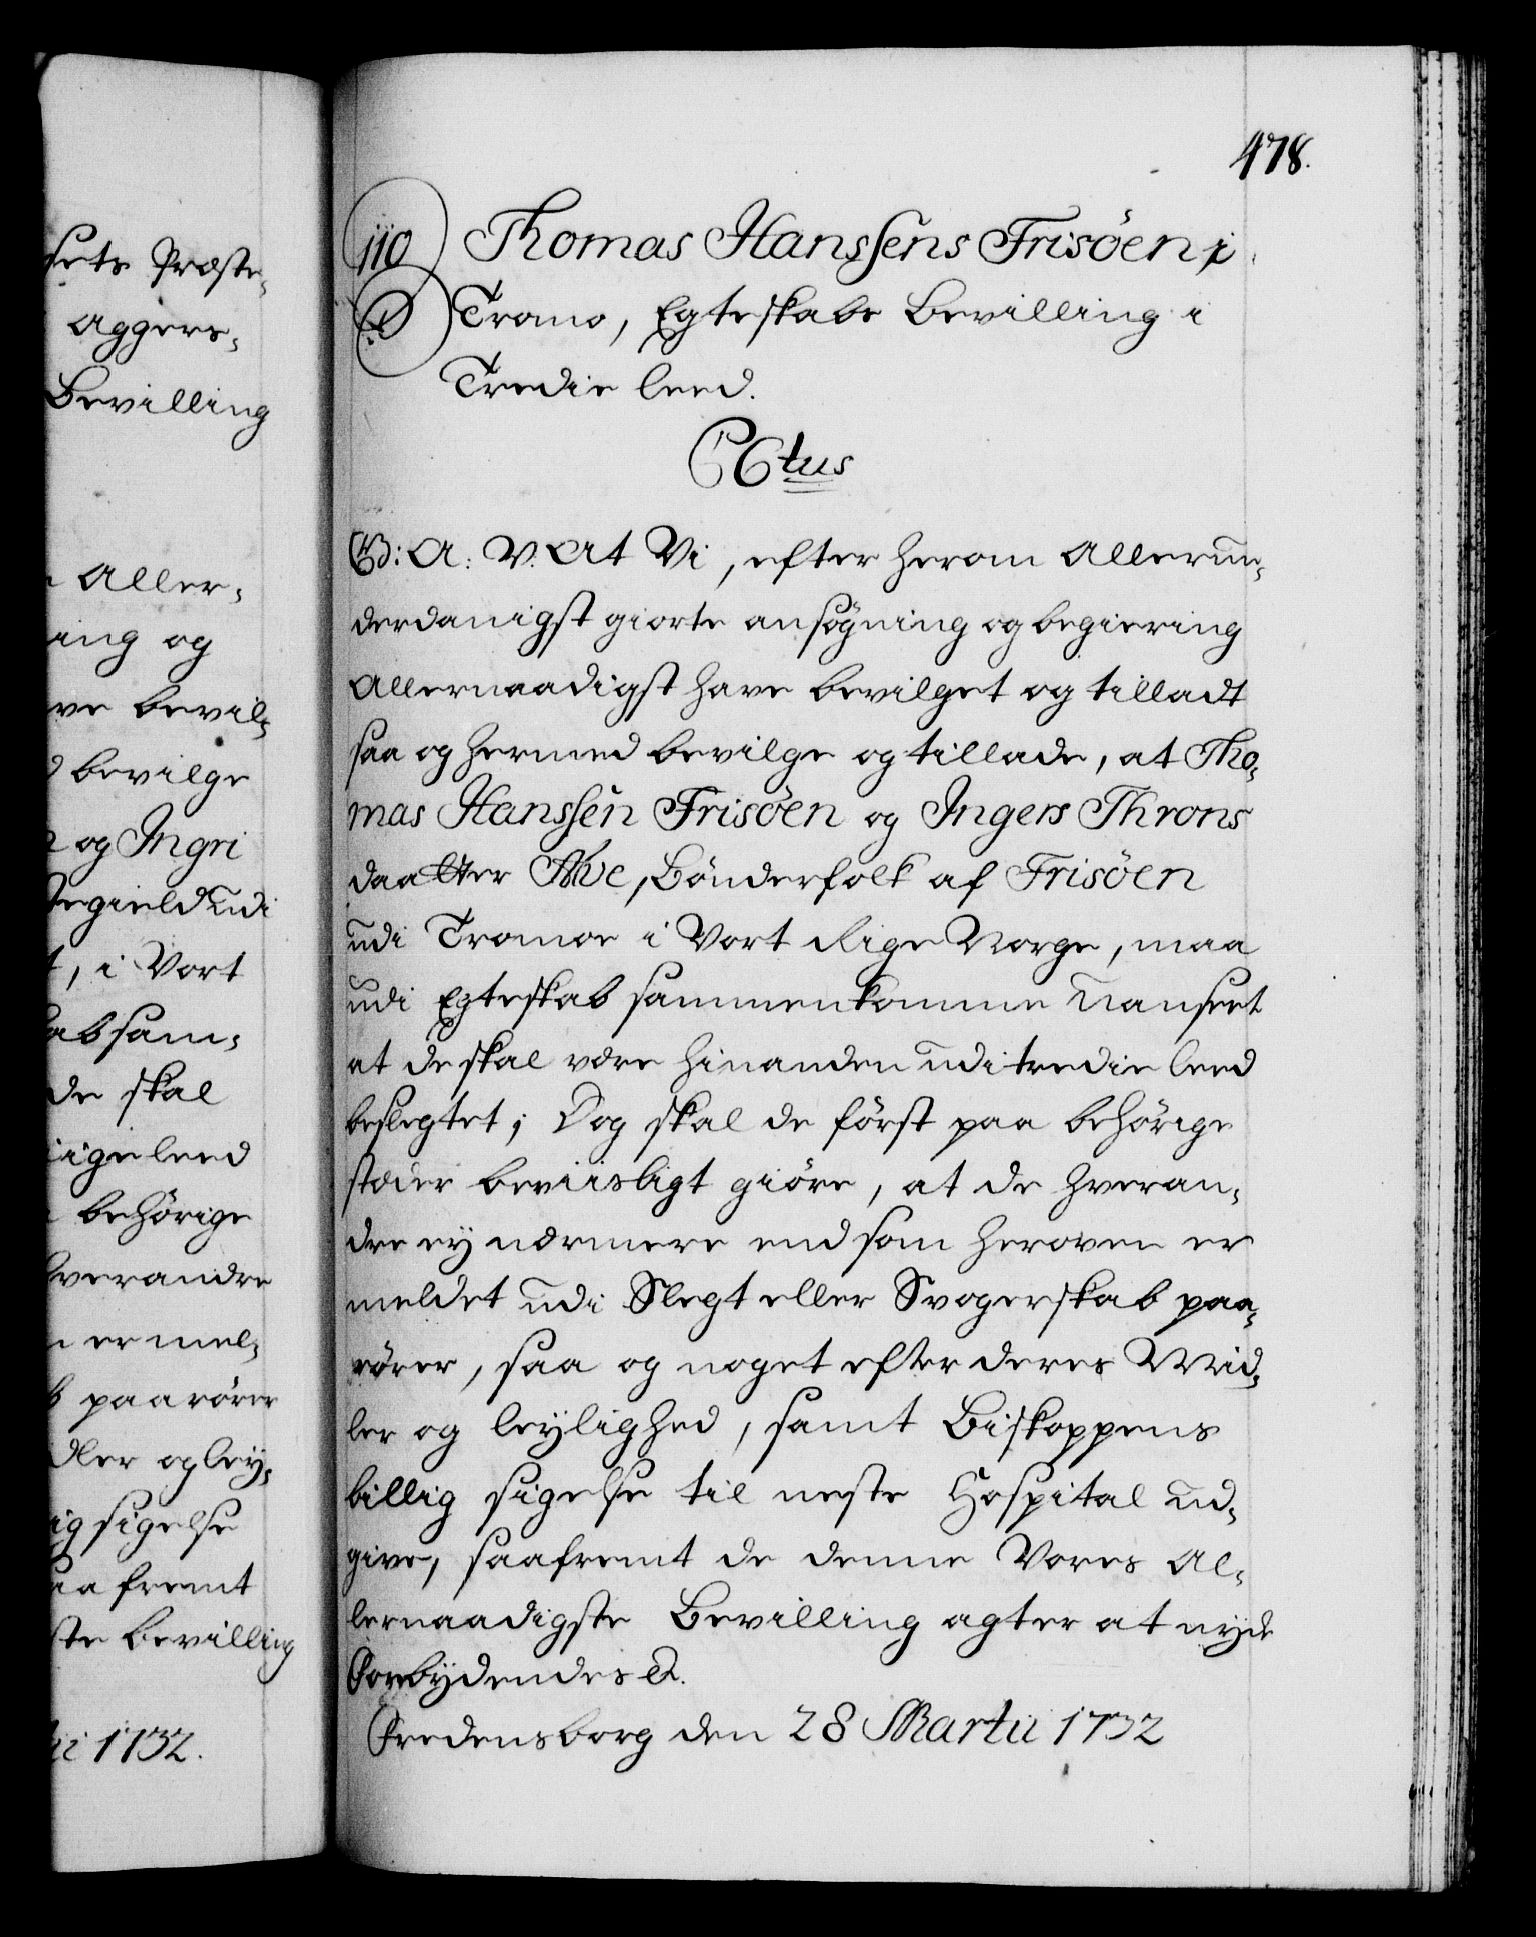 478.
110 Thomas Hansens Frisöen i
Tromo, Egteskabs Bevilling i
Tredie leed.
C6tus
G: A: V. At Vi, efter herom Allerun-
derdanigst giorte ansøgning og begiering
Allernaadigst have bevilget og tilladt
saa og hermed bevilge og tillade, at Tho-
mas Hanssen Frisöen og Ingers Throns
daatter Alve, Bönderfolk af Frisöen
udi Tromoe i Vort Rige Norge, maa
udi Egteskab sammenkomme uanseet
at de skal være hinanden udi tredie leed
beslegtet; Dog skal de först paa behörige
stæder beviisligt giöre, at de hveran-
dre ey nærmere end som heroven er
meldet udi Slegt eller Svogerskab paa-
rörer, saa og noget efter deres Mid-
ler og leylighed, samt Biskoppens
billig sigelse til neste Hospital ud-
give, saafremt de denne Vores Al-
lernaadigste Bevilling agter at nyde
Forbydendes &.
Fredensborg den 28 Martii 1732
sets Præste-
Aggers-
Bevilling
Aller-
ing og
ve bevil-
d bevilge
og Ingri
stegield udi
t, i Vort
ab sam-
de skal
igeleed
behörige
hverandre
er mel-
b paarörer
dler og ley-
ig sigelse
aafremt
ste bevilling
tii 1732.